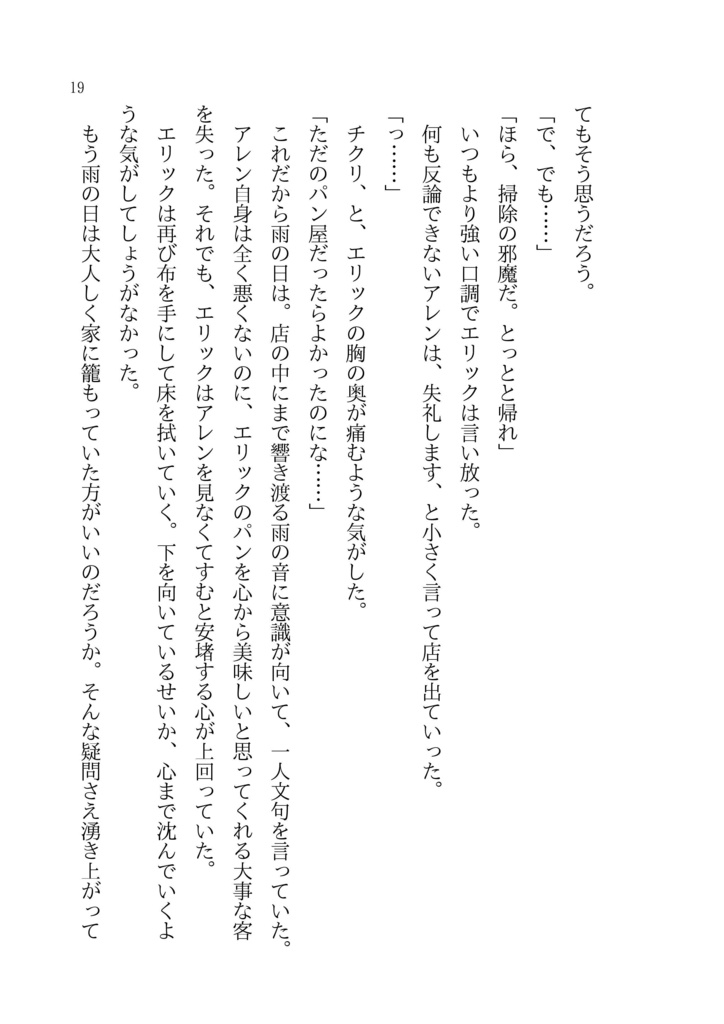 19
てもそう思うだろう。
「で、でも……」
「ほら、掃除の邪魔だ。とっとと帰れ」
いつもより強い口調でエリックは言い放った。
何も反論できないアレンは、失礼します、と小さく言って店を出ていった。
「っ……」
チクリ、と、エリックの胸の奥が痛むような気がした。
「ただのパン屋だったらよかったのにな……」
これだから雨の日は。店の中にまで響き渡る雨の音に意識が向いて、一人文句を言っていた。
アレン自身は全く悪くないのに、エリックのパンを心から美味しいと思ってくれる大事な客
を失った。それでも、エリックはアレンを見なくてすむと安堵する心が上回っていた。
エリックは再び布を手にして床を拭いていく。下を向いているせいか、心まで沈んでいくよ
うな気がしてしょうがなかった。
もう雨の日は大人しく家に籠もっていた方がいいのだろうか。そんな疑問さえ湧き上がって